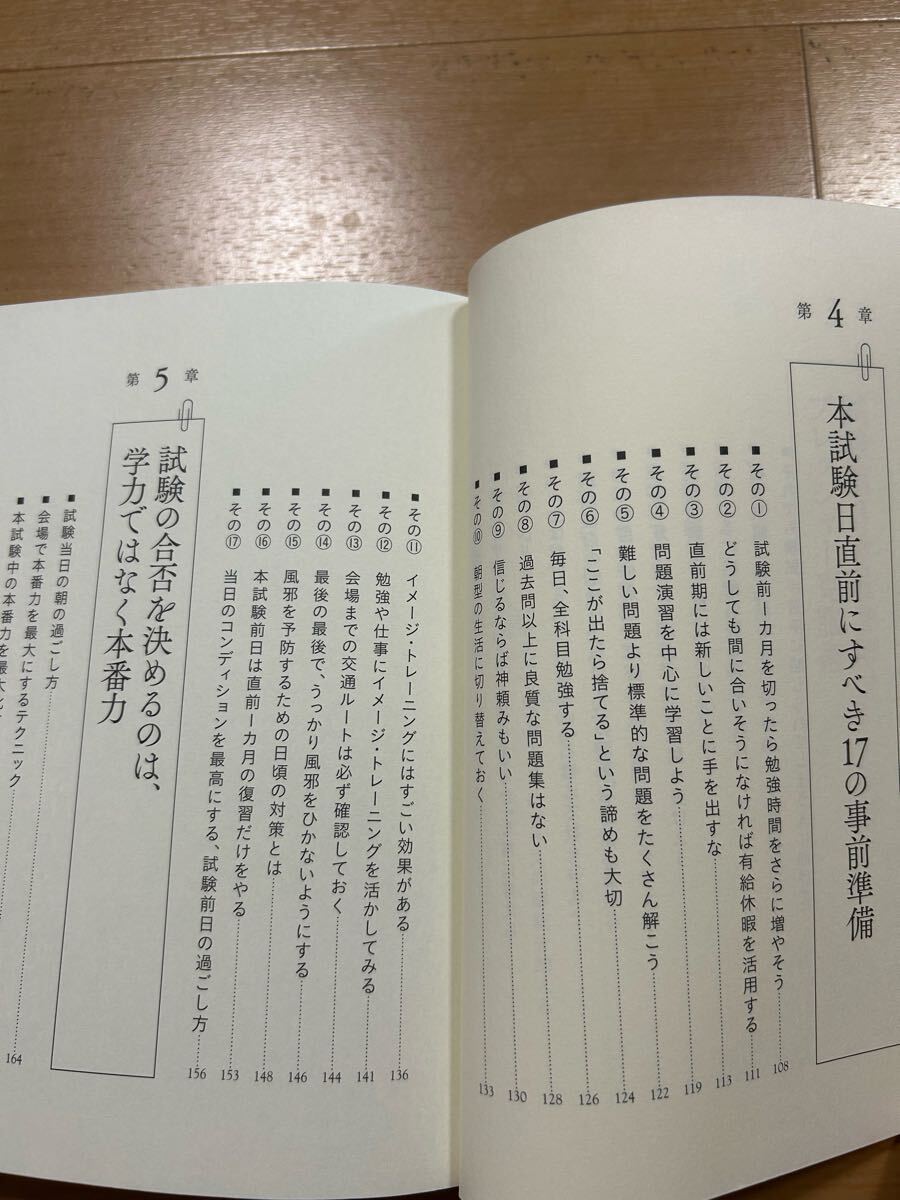 第4章
本試験日直前にすべき17の事前準備
■その① 試験前一カ月を切ったら勉強時間をさらに増やそう 108
■その② どうしても間に合いそうになければ有給休暇を活用する 111
■その③ 直前期には新しいことに手を出すな 113
■その④ 問題演習を中心に学習しよう 119
■その⑤ 難しい問題より標準的な問題をたくさん解こう 122
■その⑥ 「ここが出たら捨てる」という諦めも大切 124
■その⑦ 毎日、全科目勉強する 126
■その⑧ 過去問以上に良質な問題集はない 128
■その⑨ 信じるならば神頼みもいい 130
■その⑩ 朝型の生活に切り替えておく 133
■その⑪ イメージ・トレーニングにはすごい効果がある 136
■その⑫ 勉強や仕事にイメージ・トレーニングを活かしてみる 141
■その⑬ 会場までの交通ルートは必ず確認しておく 144
■その⑭ 最後の最後で、うっかり風邪をひかないようにする 146
■その⑮ 風邪を予防するための日頃の対策とは 148
■その⑯ 本試験前日は直前一カ月の復習だけをやる 153
■その⑰ 当日のコンディションを最高にする、試験前日の過ごし方 156
第5章
試験の合否を決めるのは、
学力ではなく本番力
■試験当日の朝の過ごし方
■会場で本番力を最大にするテクニック 164
■本試験中の本番力を最大